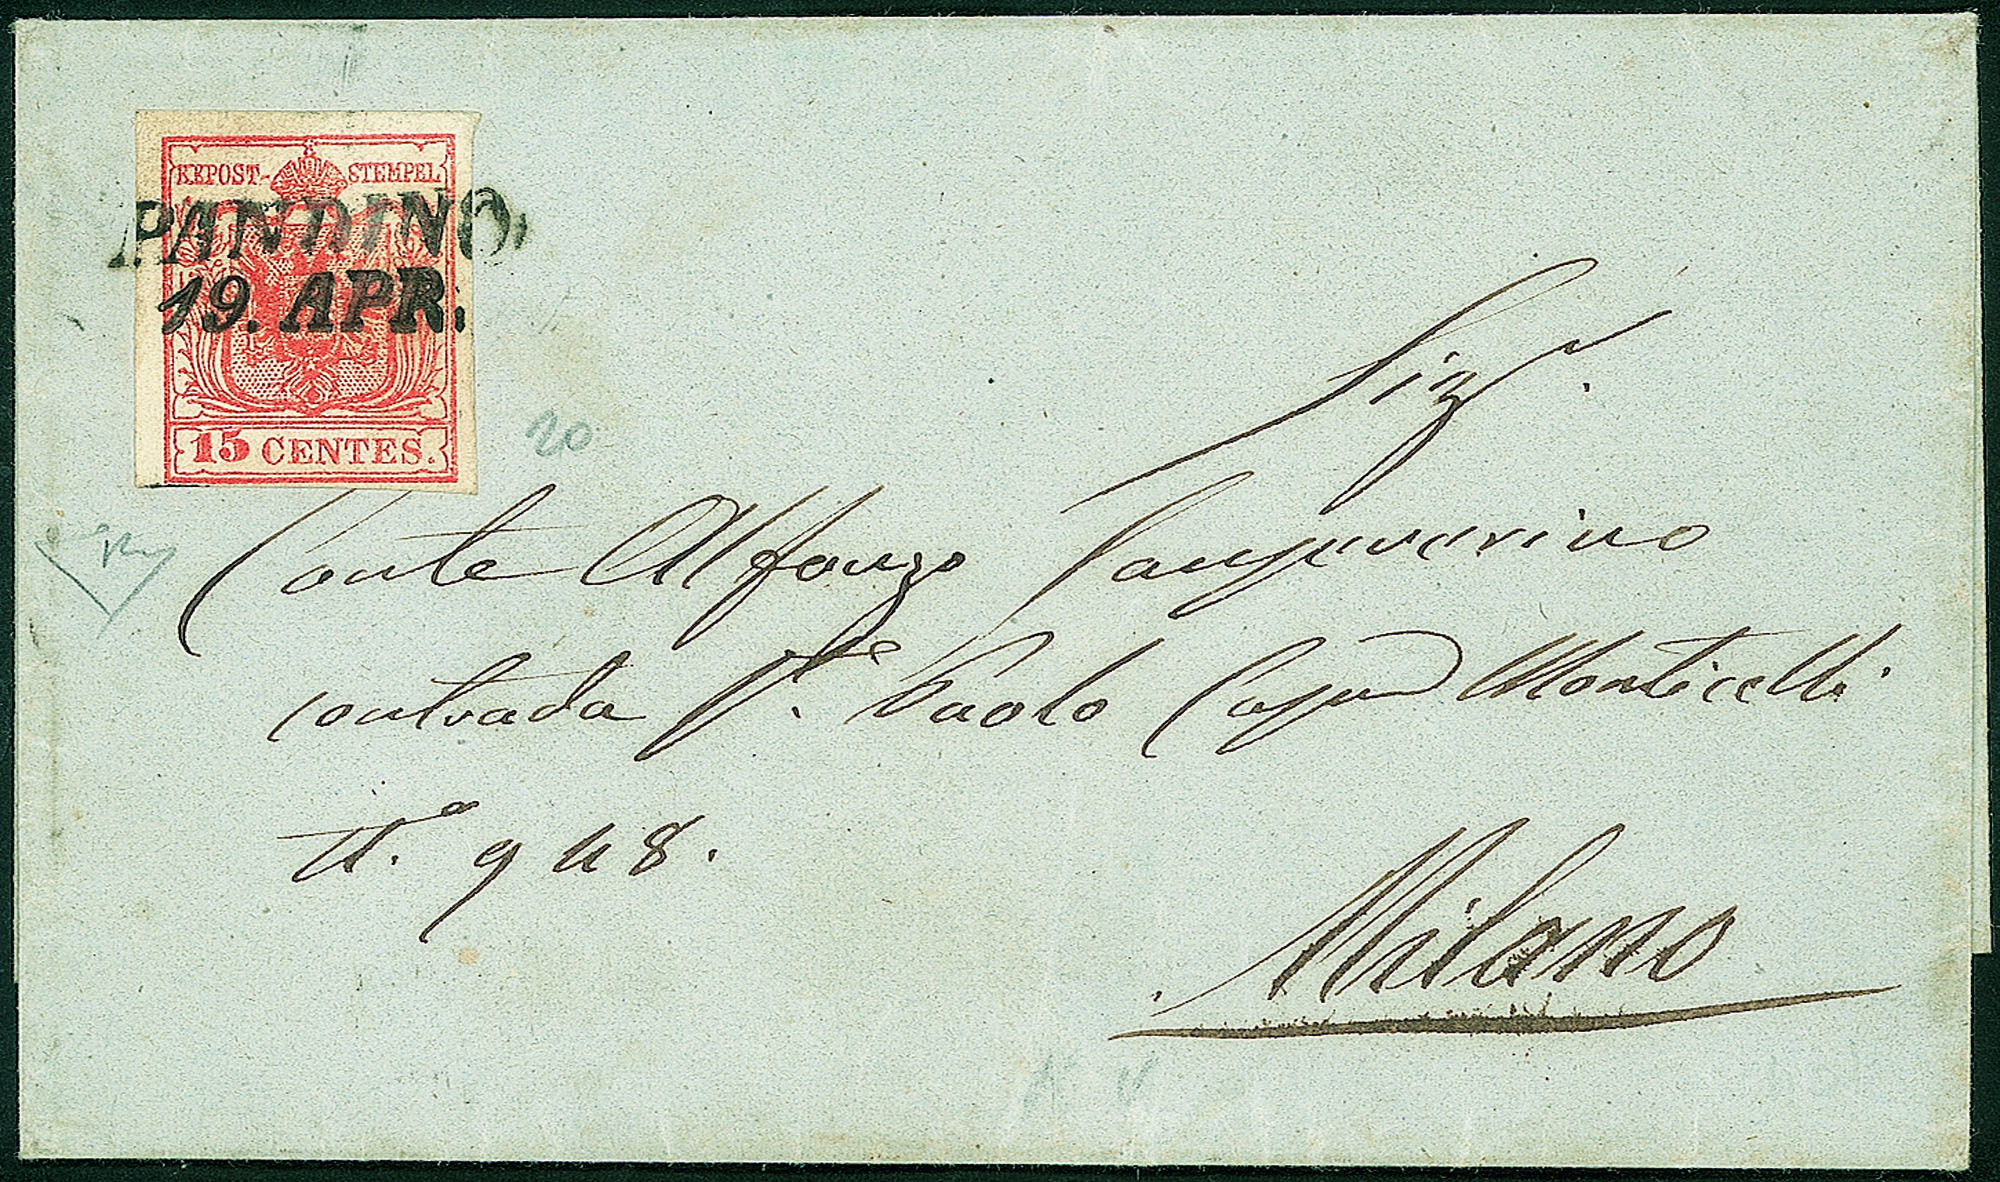 KKPOST-STEMPEL
PANDINO
19. APR.
15 CENTES.
20
Sigr.
Conte Alfonzo Sanseverino
contrada Sn. Paolo Casa Monticelli
No. 948.
Milano